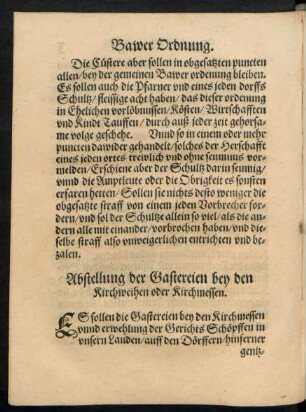 Bawer Ordnung.
Die Cüstere aber sollen in obgesatzten puncten
allen/ bey der gemeinen Bawer ordenung bleiben.
Es sollen auch die Pfarner vnd eines jeden dorffs
Schultz/ fleissige acht haben/ das dieser ordenung
in Ehelichen vorlöbnussen/ Kösten/ Wirtschafften
vnd Kindt Tauffen/ durch auß jeder zeit gehorsa-
me volge geschehe. Vnnd so in einem oder mehr
puncten dawider gehandelt/ solches der Herschafft
eines jeden ortes trewlich vnd ohne seumnus vor-
melden/ Erschiene aber der Schultz darin seumig/
vnnd die Amptleute oder die Obrigkeit es sonsten
erfaren hetten/ Sollen sie nichts desto weniger die
obgesatzte straff von einem jeden Vorbrecher for-
dern/ vnd sol der Schultze allein so viel/ als die an-
dern alle mit einander/ vorbrochen haben/ vnd die-
selbe straff also vnweigerlichen entrichten vnd be-
zalen.
Abstellung der Gastereien bey den
Kirchweihen oder Kirchmessen.
ES sollen die Gastereien bey den Kirchmessen
vnnd erwehlung der Gerichts Schöpffen in
vnsern Landen/ auff den Dörffern/ hinferner
gentz-